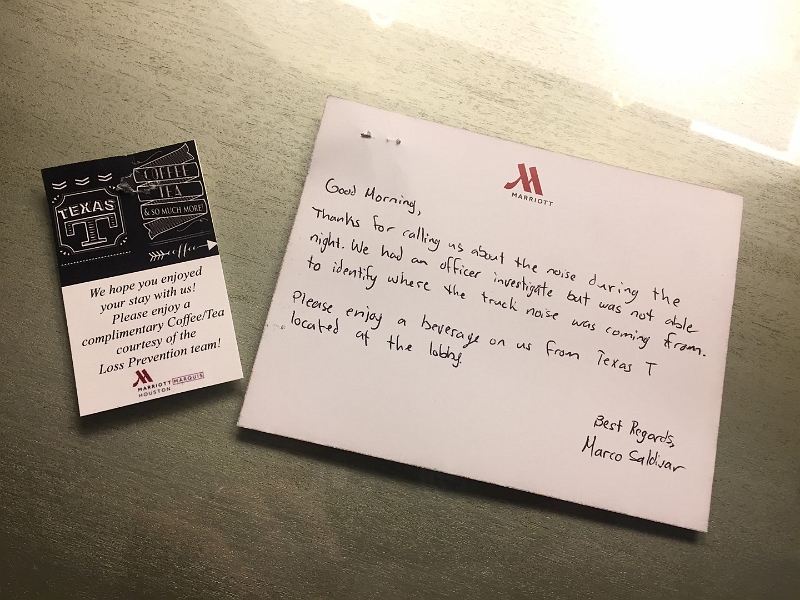 TEXAS
T
COFFEE
TEA
& SO MUCH MORE!
coffee
We hope you enjoyed
your stay with us!
Please enjoy a
complimentary Coffee/Tea
courtesy of the
Loss Prevention team!
MARRIOTT MARQUIS
HOUSTON
MARRIOTT
Good Morning,
Thanks for calling us about the noise during the
night. We had an officer investigate but was not able
to identify where the truck noise was coming from.
Please enjoy a beverage on us from Texas T
located at the lobby.
Best Regards,
Marco Saldivar